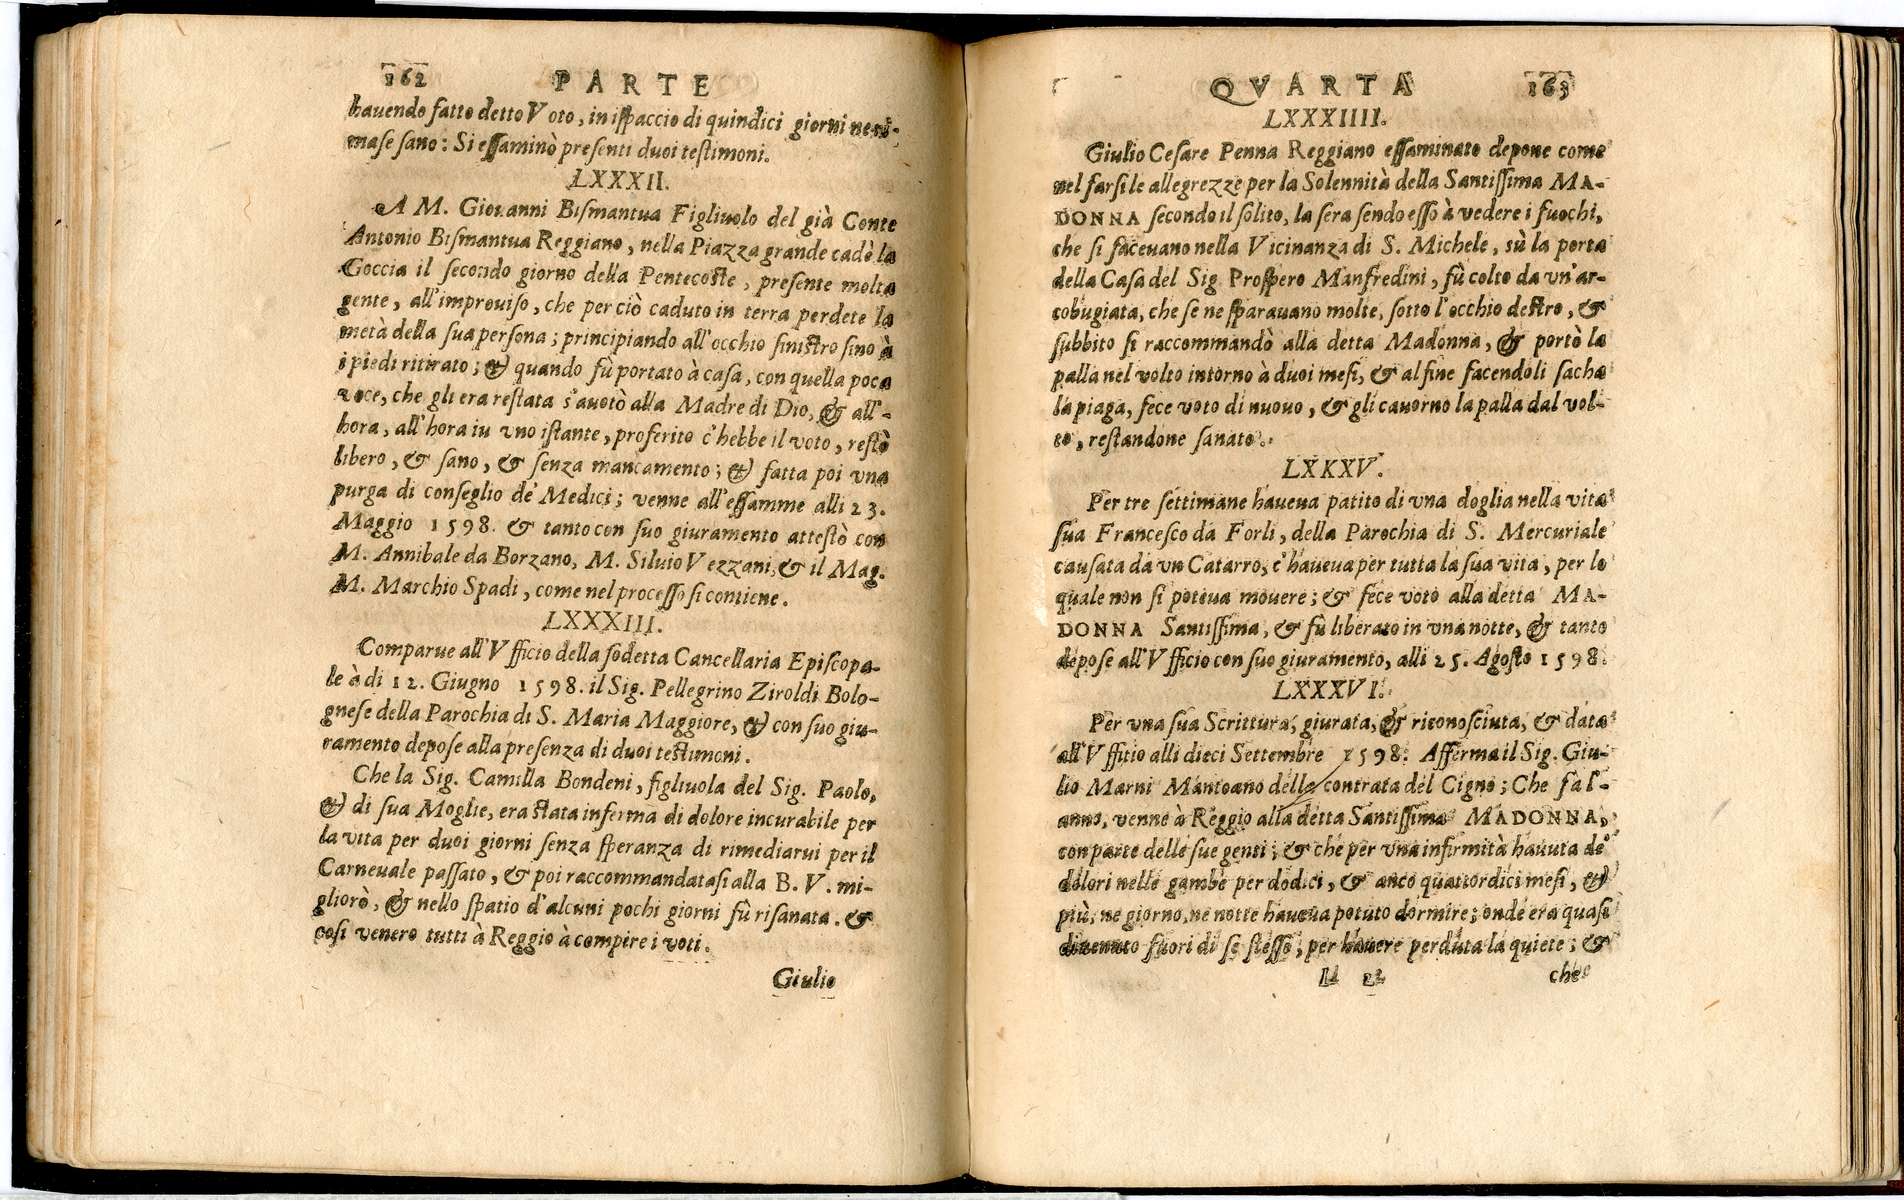 162 PARTE
hauendo fatto detto Voto, in ispaccio di quindici giorni ne ri-
mase sano: Si essaminò presenti duoi testimoni.
LXXXII.
A M. Giovanni Bismantua Figliuolo del già Conte
Antonio Bismantua Reggiano, nella Piazza grande cadè la
Goccia il secondo giorno della Pentecoste, presente molta
gente, all'improuiso, che perciò caduto in terra perdete la
metà della sua persona; principiando all'occhio sinistro sino à
i piedi ritirato; & quando fù portato à casa, con quella poca
voce, che gli era restata s'auotò alla Madre di Dio, & all'-
hora, all'hora iu vno istante, proferito c'hebbe il voto, restò
libero, & sano, & senza mancamento; & fatta poi vna
purga di conseglio de' Medici; venne all'essamme alli 23.
Maggio 1598. & tanto con suo giuramento attestò con
M. Annibale da Borzano, M. Siluio Vezzani, & il Mag.
M. Marchio Spadi, come nel processo si contiene.
LXXXIII.
Comparue all'Vfficio della sodetta Cancellaria Episcopa-
le à di 12. Giugno 1598. il Sig. Pellegrino Ziroldi Bolo-
gnese della Parochia di S. Maria Maggiore, & con suo giu-
ramento depose alla presenza di duoi testimoni.
Che la Sig. Camilla Bondeni, figliuola del Sig. Paolo,
& di sua Moglie, era stata inferma di dolore incurabile per
la vita per duoi giorni senza speranza di rimediarui per il
Carneuale passato, & poi raccommandatasi alla B. V. mi-
gliorò, & nello spatio d'alcuni pochi giorni fù risanata. &
cosi venero tutti à Reggio à compire i voti.
Giulio
QVARTA 163
LXXXIIII.
Giulio Cesare Penna Reggiano essaminato depone come
nel farsi le allegrezze per la Solennità della Santissima MA-
DONNA secondo il solito, la sera sendo esso à vedere i fuochi,
che si faceuano nella Vicinanza di S. Michele, sù la porta
della Casa del Sig. Prospero Manfredini, fù colto da vn'ar-
cobugiata, che se ne sparauano molte, sotto l'occhio destro, &
subbito si raccommandò alla detta Madonna, & portò la
palla nel volto intorno à duoi mesi, & al fine facendoli sacha
la piaga, fece voto di nuouo, & gli cauorno la palla dal vol-
to, restandone sanato.
LXKXV.
Per tre settimane haueua patito di vna doglia nella vita
sua Francesco da Forli, della Parochia di S. Mercuriale
causata da vn Catarro, c'haueua per tutta la sua vita, per lo
quale non si poteua mouere; & fece voto alla detta MA-
DONNA Santissima, & fù liberato in vna notte, & tanto
depose all'Vfficio con suo giuramento, alli 25. Agosto 1598.
LXXXVI.
Per vna sua Scrittura, giurata, & riconosciuta, & data
all'Vffitio alli dieci Settembre 1598. Afferma il Sig. Giu-
lio Marni Mantoano della contrata del Cigno; Che fa l'-
anno, venne à Reggio alla detta Santissima MADONNA,
con parte delle sue genti; & che per vna infirmità hauuta de'
dolori nelle gambe per dodici, & anco quattordici mesi, &
più, ne giorno, ne notte haueua potuto dormire; onde era quasi
diuenuto fuori di se stesso, per hauere perduta la quiete; &
che